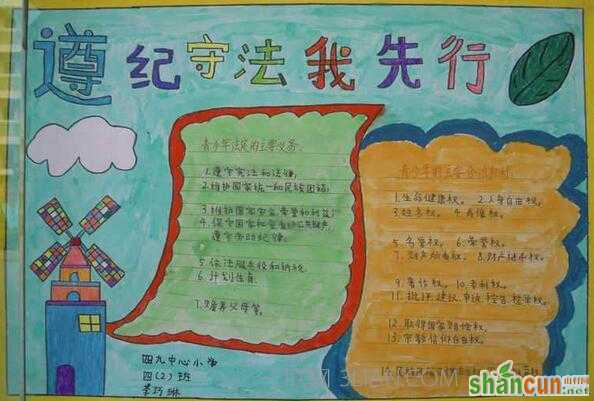 遵纪守法我先行
青少年法定的主要义务
1.遵守宪法和法律,
2.维护国家统一和民族团结
3.维护国家安全、荣誉和利益;
4.保守国家秘密
遵守劳动纪律.
5.依法服兵役和纳税
6.计划生育.
7.赡养父母等.
青少年的主要
1.生命健康权. 2.人身自由权,
3.姓名权. 4.肖像权.
5.名誉权. 6.荣誉权.
7.财产所有权. 8.财产继承权.
9.著作权. 10.专利权.
11.批评、建议、申诉、控告、检举权.
12.取得国家赔偿权.
13.宗教信仰自由权.
14.
四九中心小学
四(2)班
shancun.net